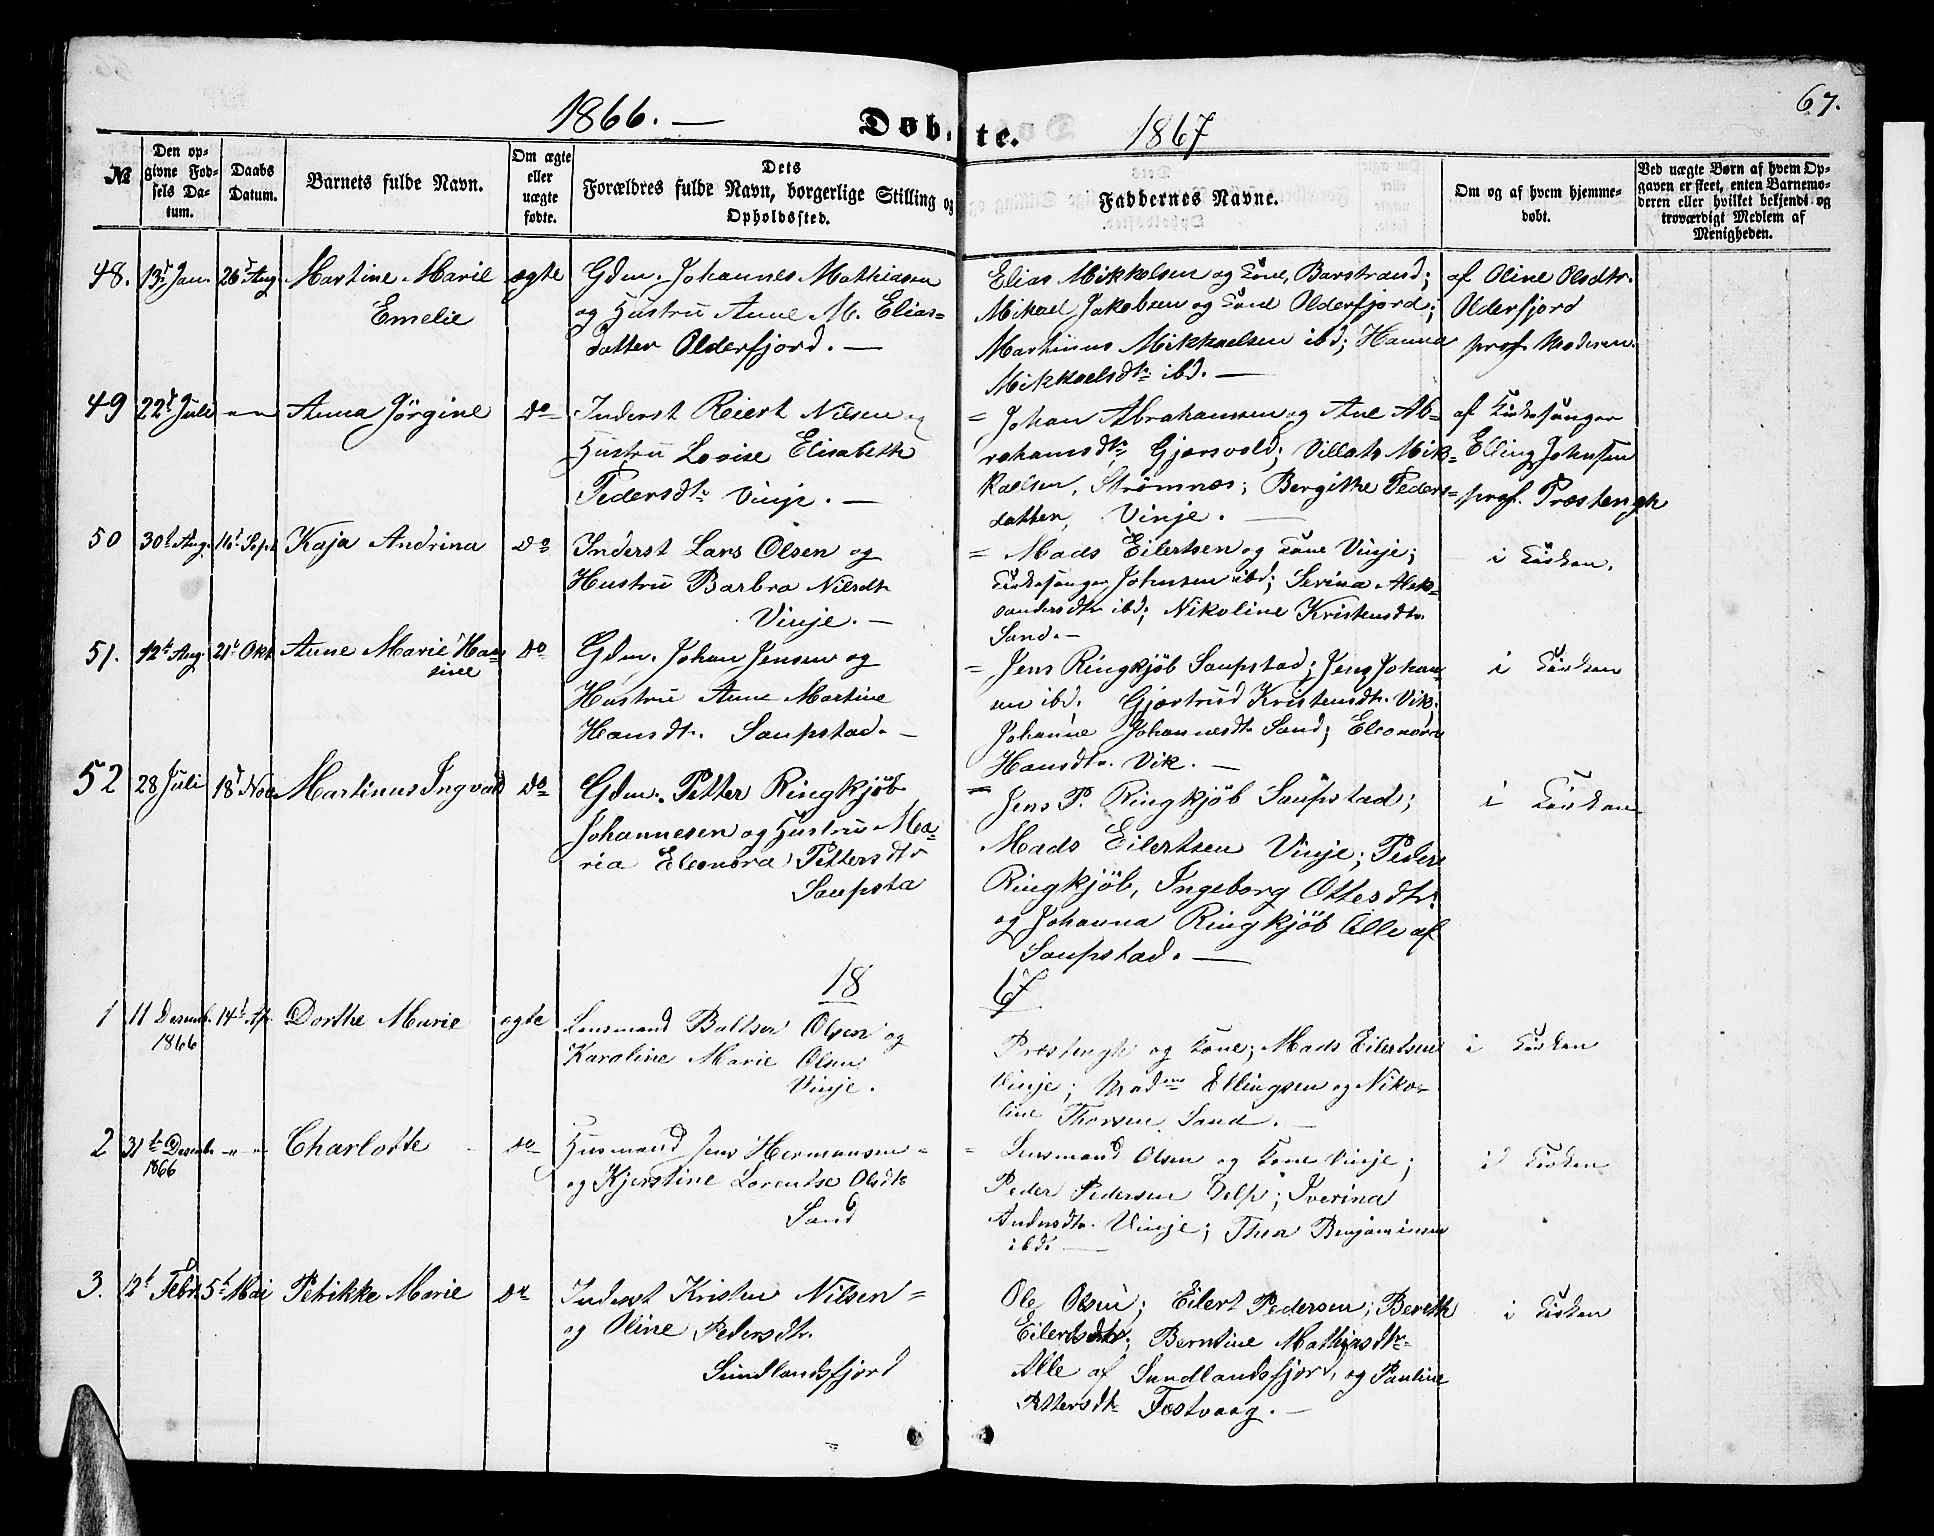 67.
1866. — Døbte. 1867
№ Den opgivne Fødsels Datum. Daabs Datum. Barnets fulde Navn. Om ægte eller uægte fødte. Dets Forældres fulde Navn, borgerlige Stilling og Opholdssted. Faddernes Navne. Om og af hvem hjemmedøbt. Ved uægte Børn af hvem Opgaven er skeet, enten Barnemoderen eller hvilket bekjendt og troværdigt Medlem af Menigheden.
48. 13t Jan. 26t Aug. Martine Marie ægte Gdm. Johannes Mathiasen Elias Mikkelsen og Kone, Barstrand; af Oline Olsdtr.
Emelie og Hustru Anne M. Elias= Mikael Jakobsen og Kone Olderfjord; Olderfjord
datter Olderfjord. — Martinus Mikkaelsen ibd; Hanna prof. Moderen.
Mikkaelsdtr ibd. —
49 22t Juli —"— Anna Jørgine Do Inderst Reiert Nilsen og = Johan Abrahamsen og Ane Ab= af Kirkesanger
Hustru Lovise Elisabeth rahamsdtr, Gjersvold; Villats Mik= Elling Johnsen
Pedersdtr Vinje. — kaelsen, Strømnes; Bergithe Peders= prof. Præstengh
datter, Vinje. —
50 30t Aug. 16t Sept Kaja Andrina Do Inderst Lars Olsen og = Mads Eilertsen og Kone Vinje; i Kirken.
Hustru Barbra Nilsdtr Kirkesanger Johnsen ibd; Serina Alek=
Vinje. — sandersdtr ibd; Nikoline Kristensdtr.
Sand. —
51. 12t Aug. 21t Okt. Anne Marie Han= Do Gdm. Johan Jensen og = Jens Ringkjøb Saupstad; Jens Johan= i Kirken
sine Hustru Anne Martine nn ibd. Gjertrud Kristensdtr. Vik.
Hansdtr. Saupstad. — Johanne Johannesdtr Sand; Eleonora
Hansdtr. Vik. —
52 28 Juli 18t Nov. Martinus Ingvald Do Gdm. Petter Ringkjøb = Jens P. Ringkjøb Saupstad; i Kirken
Johannesen og Hustru Ma= Mads Eilertsen Vinje; Peder
ria Eleonora Pettersdtr Ringkjøb, Ingeborg Ottesdtr.
Saupsta og Johanna Ringkjøb Alle af
Saupstad. —
18 67
1 11 Decemb. 14t Ap. Dorthe Marie ægte Lensmand Baltser Olsen og Præstengh og Kone; Mads Eilertsen i Kirken
1866 Karoline Marie Olsen Vinje; Madme Ellingsen og Niko=
Vinje. line Thorsen. Sand. —
2 31t Decemb. —"— Charlotte Do Husmand Jens Hermansen = = Lensmand Olsen og Kone Vinje; i Kirken
1866 og Kjerstine Lorentse Olsdtr Peder Pedersen Delp; Iverina
Sand Andersdtr. Vinje; Thea Benjaminsen
ibd. —
3. 12t Febr. 5t Mai Petrikke Marie Do Inderst Kristen Nilsen = Ole Olsen; Eilert Pedersen; Bereth i Kirken
og Oline Pedersdtr. Eilertsdtr; Berntine Mathiasdtr—
Sundlandsfjord Alle af Sundlandsfjord, og Pauline
Pettersdtr Festvaag. —